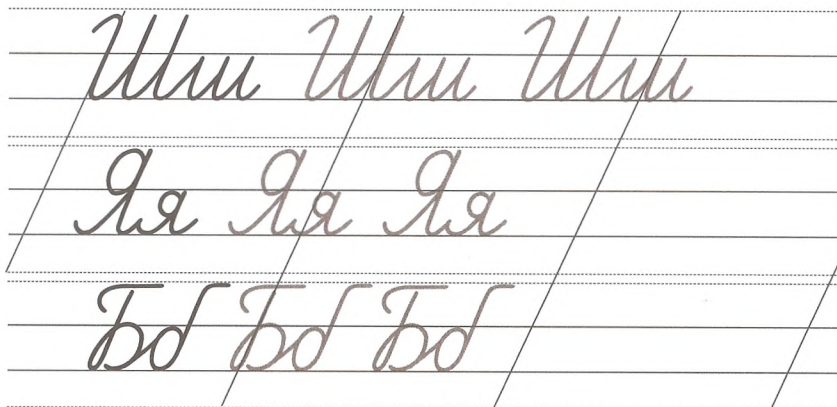 Шш Шш Шш
Яя Яя Яя
Бб Бб Бб